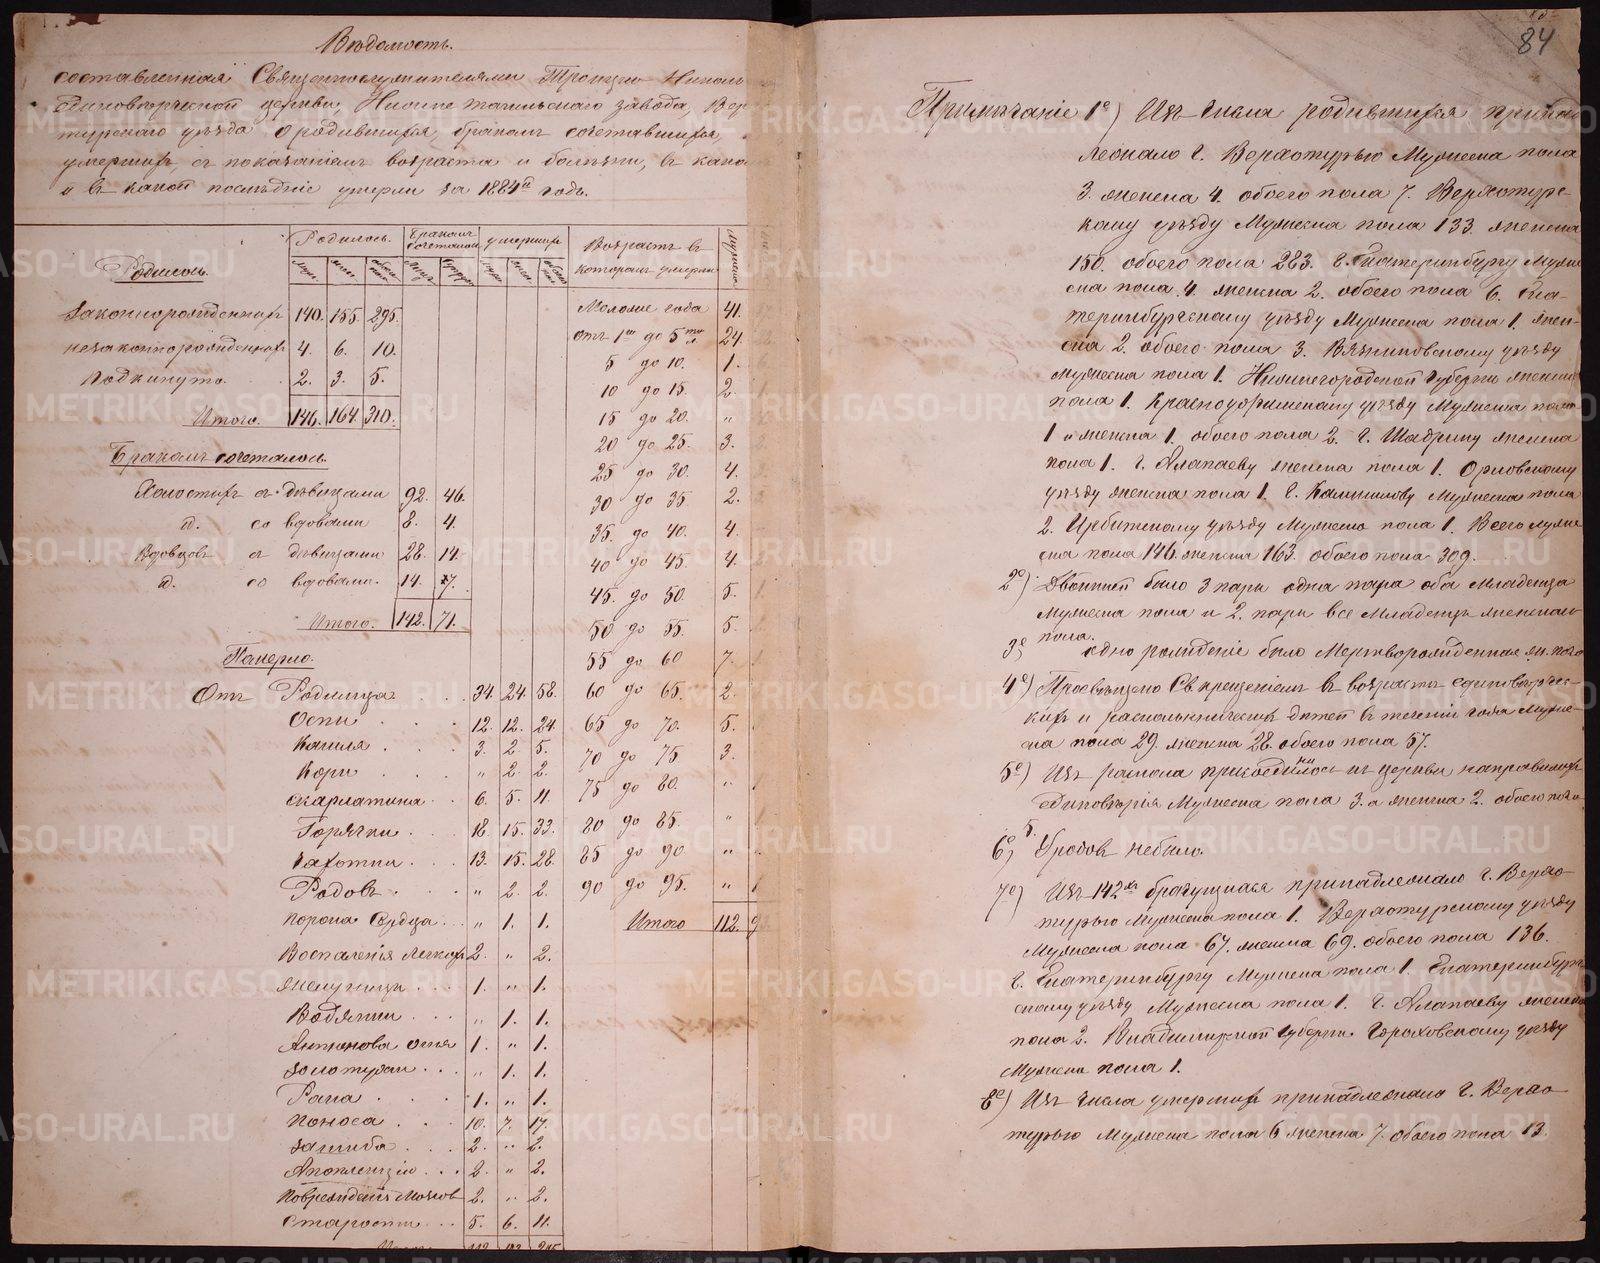 Вѣдомость.
составленная Священнослужителями Троицко Никол
Единовѣрческой церкви, Нижне тагильскаго завода, Вер
турскаго уѣзда о родившихся, бракомъ сочетавшихся,
умершихъ, съ показаніемъ возраста и болѣзни, въ како
и въ какой послѣдніе умерли за 1884й годъ.
Родилось. Родилось. Бракомъ сочеталось умершихъ Возрастъ въ
муж. жен. обоего пола муж. жен. котором умерли
Законнорожденныхъ 140. 155. 295.
незаконнорожденныхъ 4. 6. 10.
Подкинуто. 2. 3. 5.
Итого. 146. 164. 310.
Бракомъ сочеталось.
Холостыхъ съ дѣвицами 92. 46.
id. со вдовами 8. 4.
Вдовцовъ съ дѣвицами 28. 14.
id. со вдовами. 14. 7.
Итого. 142. 71.
Памерло.
Отъ Родимца 34. 24. 58.
Оспы 12. 12. 24.
Кашля 3. 2. 5.
Кори " 2. 2.
Скарлатина 6. 5. 11.
Горячки 18. 15. 33.
Чахотки 13. 15. 28.
Родовъ " 2. 2.
Порока Сердца " 1. 1.
Воспаленія Легкихъ 2. " 2.
1. " 1.
Водянки " 1. 1.
Антонова огня 1. " 1.
Золотухи " 1. 1.
Рана 1. " 1.
Поноса 10. 7. 17.
Загиба 2. " 2.
Апоплексіи 2. " 2.
Поврежденія Мозговъ 2. " 2.
Старости 5. 6. 11.
Моложе года 41.
отъ 1го до 5ти 24.
5 до 10. 1.
10 до 15. 2.
15 до 20. "
20 до 25. 3.
25 до 30. 4.
30 до 35. 2.
35. до 40. 4.
40 до 45. 4.
45. до 50. 5.
50 до 55. 5.
55 до 60 7.
60 до 65. 2.
65 до 70. 5.
70 до 75 3.
75 до 80. "
80 до 85. "
85 до 90 "
90 до 95. "
Итого 112.
84
Примѣчаніе 1е) Изъ числа родившихся принад
лежало г. Верхотурью Мужеска пола
3. женска 4. обоего пола 7. Верхотурс-
кому уѣзду Мужеска пола 133. женска
150. обоего пола 283. г. Екатеринбургу Муже
ска пола 4. женска 2. обоего пола 6. Ека-
теринбурскому уѣзду Мужеска пола 1. жен-
ска 2. обоего пола 3. Вязниковскому уѣзду
мужеска пола 1. Нижегородской Губерни женска
пола 1. Красноуфимскому уѣзду Мужеска пола
1 и женска 1. обоего пола 2. г. Шадрину женска
пола 1. г. Алапаеву женска пола 1. Орловскому
уѣзду женска пола 1. г. Камышлову Мужеска пола
2. Ирбитскому уѣзду Мужеска пола 1. Всего муже
ска пола 146. женска 163. обоего пола 309.
2е) Двойней было 3 пары одна пара оба младенца
мужеска пола и 2. пары все младенцы женскаго
пола.
3е одно рожденіе было Мертворожденная ж. пола
4е) Просвѣщено Св. крещеніемъ въ возрастѣ единовѣрчес-
кихъ и раскольническихъ дѣтей въ теченіи года муже-
ска пола 29. женска 28. обоего пола 57.
5е) Изъ раскола присоединилось къ церкви на правилахъ
Единовѣрія Мужеска пола 3. а женска 2. обоего пола
5.
6е) Уродовъ не было.
7е) Изъ 142хъ брачущихся принадлежало г. Верхо-
турью мужеска пола 1. Верхотурскому уѣзду
Мужеска пола 67. женска 69. обоего пола 136.
г. Екатеринбургу Мужеска пола 1. Екатеринбург
скому уѣзду Мужеска пола 1. г. Алапаеву женска
пола 2. Владимирской Губерни Гороховскому уѣзду
Мужеска пола 1.
8е) Изъ числа умершихъ принадлежало г. Верхо-
турью Мужеска пола 6 женска 7. обоего пола 13